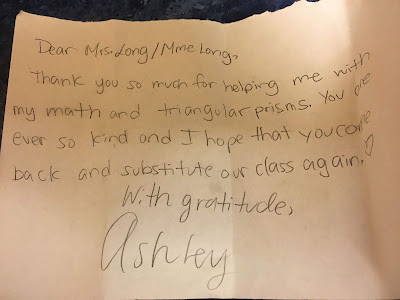 Dear Mrs.Long/Mme Long,
Thank you so much for helping me with
my math and triangular prisms. You are
ever so kind and I hope that you come
back and substitute our class again.♡
With gratitude,
Ashley